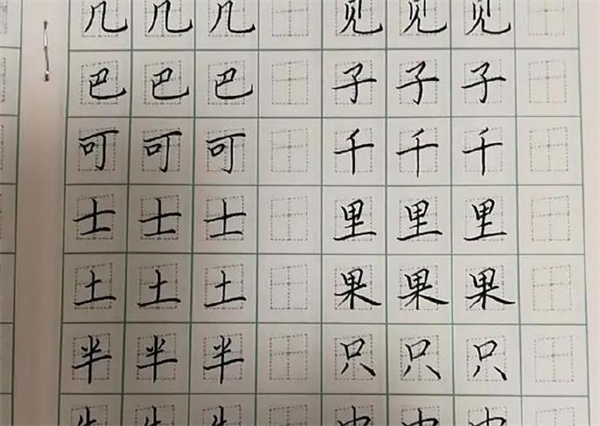 几几几 见见见
巴巴巴 子子子
可可可 千千千
士士士 里里里
土土土 果果果
半半半 只只只